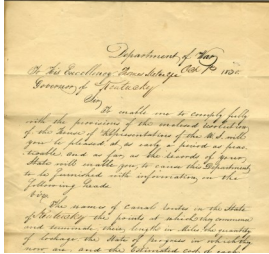 Department of War
Oct 1830
To His Excellency Thomas Metcalfe
Governor of Kentucky
Sir
To enable me to comply fully
with the provisions of the enclosed resolution
of the House of Representatives of the U.S. will
you be pleased at as early a period as prac-
ticable and as far, as the records of your
State will enable you, to cause this Department
to be furnished with information, on the
following heads
The names of Canal routes in the State
of Kentucky the points at which they commence
and terminate their length in Miles the quantity
of Lockage the State of progress in which they
now are and the Estimated cost of each